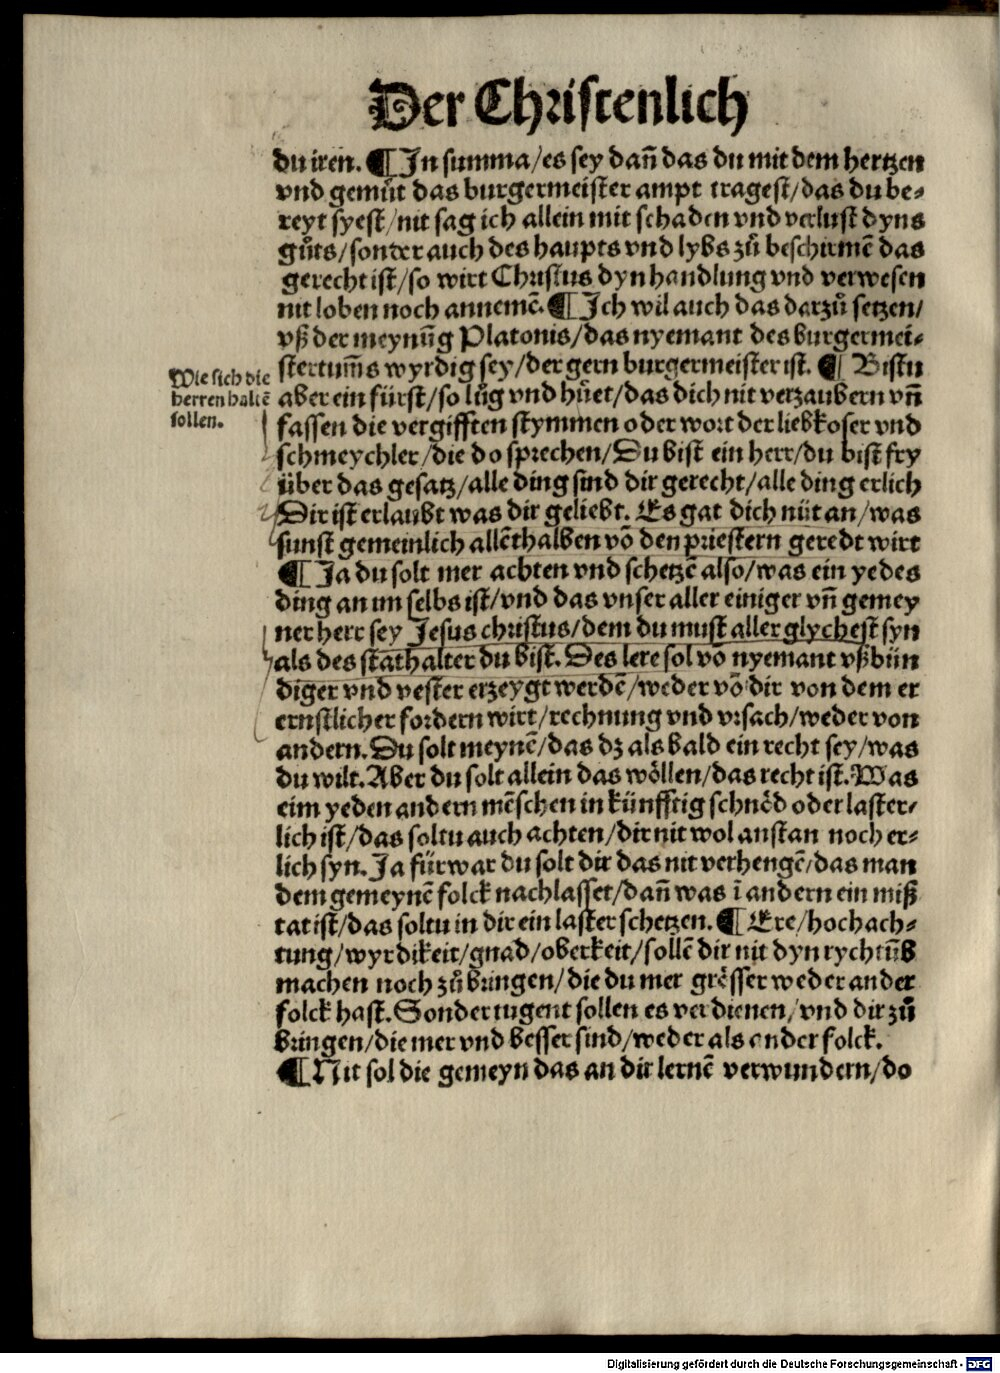 Der Christenlich
du iren. ¶ In summa/es sey dañ das du mit dem hertzen
vnd gemuͤt das burgermeister ampt tragest/das du be⸗
reyt syest/nit sag ich allein mit schaden vnd verlust dyns
guͦts/sonder auch des haupts vnd lybs zuͦ beschirmē das
gerecht ist/so wirt Christus dyn handlung vnd verwesen
nit loben noch annemē. ¶ Ich wil auch das darzuͦ setzen/
vß der meynūg Platonis/das nyemant des burgermei⸗
stertum̄s wyrdig sey/der gern burgermeister ist. ¶ Bistu
Wie sich die
herren haltē
sollen.
aber ein fürst/so luͦg vnd huͤet/das dich nit verzaubern vñ
fassen die vergifften stymmen oder wort der liebkoser vnd
schmeychler/die do sprechen/Du bist ein herr/du bist fry
über das gesatz/alle ding sind dir gerecht/alle ding erlich
Dir ist erlaubt was dir geliebt. Es gat dich nüt an/was
sunst gemeinlich allēthalben vō den priestern geredt wirt
¶ Ja du solt mer achten vnd schetzē also/was ein yedes
ding an im selbs ist/vnd das vnser aller einiger vñ gemey
ner herr sey Jesus christus/dem du must aller glychest syn
als des stathalter du bist. Des lere sol vō nyemant vßbün
diger vnd vester erzeygt werdē/weder vō dir von dem er
ernstlicher fordern wirt/rechnung vnd vrsach/weder von
andern. Du solt meynē/das dz als bald ein recht sey/was
du wilt. Aber du solt allein das woͤllen/das recht ist. Was
eim yeden andern mēschen in künfftig schnoͤd oder laster⸗
lich ist/das soltu auch achten/dir nit wol anstan noch er⸗
lich syn. Ja fürwar du solt dir das nit verhengē/das man
dem gemeynē folck nachlasset/dañ was ī andern ein miß
tat ist/das soltu in dir ein laster schetzen. ¶ Ere/hochach⸗
tung/wyrdikeit/gnad/oberkeit/sollē dir nit dyn rychtūb
machen noch zuͦ bringen/die du mer groͤsser weder ander
folck hast. Sonder tugent sollen es verdienen/vnd dir zuͦ
bringen/die mer vnd besser sind/weder als ander folck.
¶ Nit sol die gemeyn das an dir lernē verwundern/do
Digitalisierung gefördert durch die Deutsche Forschungsgemeinschaft - DFG